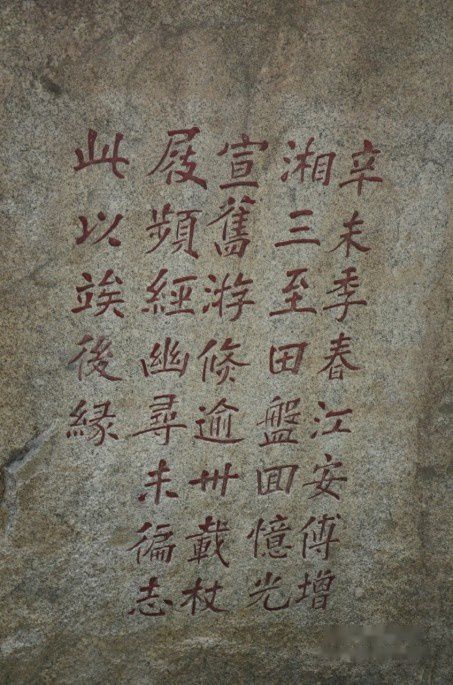 辛未季春江安傅增
湘三至田盤回憶光
宣舊游倏逾卅載杖
屐頻經幽尋未徧志
此以竢後緣